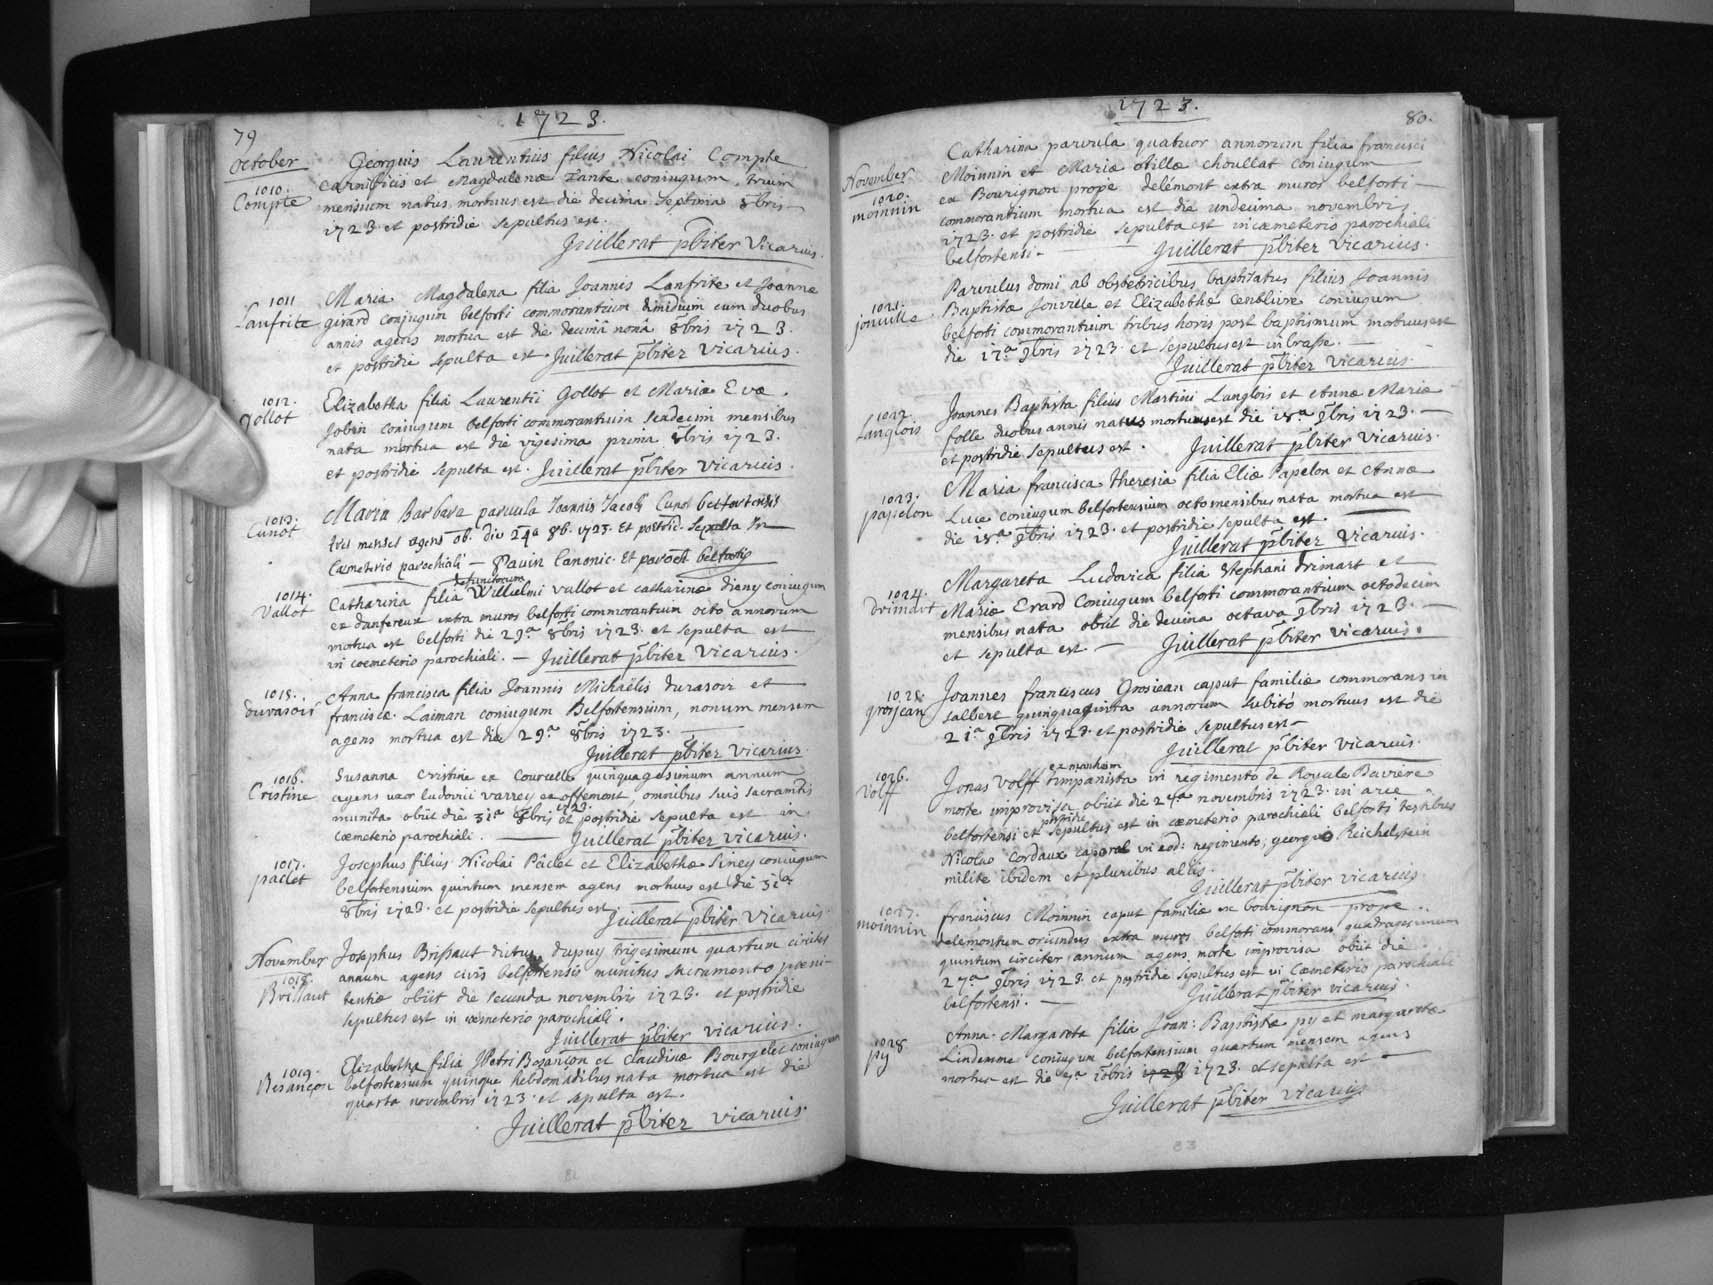 1723.
79
October
1010.
Compte
Georgius Laurentius filius Nicolai Compte
carnificis et Magdalenæ Tante coniugum, trium
mensium natus mortuus est die decima septima 8bris
1723 et postridie sepultus est.
Juillerat pbiter Vicarius.
1011
Lanfrite
Maria Magdalena filia Joannis Lanfrite et Joannæ
girard conjugum belforti commorantium dimidium cum duobus
annis agens mortua est die decimâ nonâ 8bris 1723.
et postridie sepulta est. Juillerat pbiter Vicarius.
1012.
Gollot
Elizabetha filia Laurentii Gollot et Mariæ Evæ
Jobin coniugum belforti commorantium sexdecim mensibus
nata mortua est die vigesima prima 8bris 1723.
et postridie sepulta est. Juillerat pbiter vicarius.
1013.
Cunot
Maria Barbara parvula Joannis Jacobi Cunot belfortensis
tres menses agens ob. die 24a 8b. 1723. et postrid. sepulta in
Cæmeterio parochiali — Pavin Canonic. et paroch belfortis
1014.
Vallot
defunctorum
Catharina filia Willielmi vallot et catharinæ dieny coniugum
ex danjereux extra muros belforti commorantium octo annorum
mortua est belforti die 29a 8bris 1723. et sepulta est
in coemeterio parochiali. — Juillerat pbiter Vicarius.
1015.
durasoir
Anna francisca filia Joannis Michaëlis durasoir et
franciscæ Laiman coniugum Belfortensium, nonum mensem
agens mortua est die 29a 8bris 1723. —
Juillerat pbiter Vicarius.
1016.
Cristine
Susanna Cristine ex Courcelle quinquagesimum annum
agens uxor ludovici varrey ex offemont, omnibus suis sacramtis
munita obiit die 31a 8bris 1723 et postridie sepulta est in
cæmeterio parochiali. — Juillerat pbiter vicarius.
1017.
paclet
Josephus filius Nicolai Pâclet et Elizabethæ Siney coniugum
belfortensium quintum mensem agens mortuus est die 31a
8bris 1723. et postridie sepultus est Juillerat pbiter Vicarius.
November
1018.
Brissaut
Josephus Brissaut dictus dupuy trigesimum quartum circiter
annum agens civis belfortensis munitus sacramento pœni-
tentiæ obiit die secunda novembris 1723. et postridie
sepultus est in cæmeterio parochiali.
Juillerat pbiter vicarius.
1019.
Besançon
Elizabetha filia Petri Bezançon et claudinæ Bourgelet coniugum
belfortensium quinque hebdomadibus nata mortua est die
quarta novembris 1723. et sepulta est.
Juillerat pbiter vicarius.
1723.
80.
November
1020.
moinnin
Catharina parvula quatuor annorum filia francisci
Moinnin et Mariæ otillæ choullat coniugum
ex Bourignon propè delémont extra muros belforti —
commorantium mortua est die undecima novembris
1723. et postridie sepulta est in cæmeterio parochiali
belfortensi — Juillerat pbiter Vicarius.
1021.
jonville
Parvulus domi ab obstetricibus baptizatus filius Joannis
Baptistæ Jonville et Elizabethæ cenblire coniugum
belforti commorantium tribus horis post baptismum mortuus est
die 17a 9bris 1723. et sepultus est in brasse. —
Juillerat pbiter vicarius.
1022.
Langlois
Joannes Baptista filius Martini Langlois et Annæ Mariæ
folle duobus annis natus mortuus est die 18a 9bris 1723. —
et postridie sepultus est. Juillerat pbiter vicarius.
1023.
papelon
Maria francisca theresia filia Eliæ Papelon et Annæ
Luce coniugum belfortensium octo mensibus nata mortua est
die 18a 9bris 1723. et postridie sepulta est. —
Juillerat pbiter vicarius.
1024.
Drimart
Margareta Ludovica filia Stephani Drimart et
Mariæ Erard Coniugum belforti commorantium octodecim
mensibus nata obiit die decima octava 9bris 1723. —
et sepulta est. — Juillerat pbiter vicarius.
1025.
grosjean
Joannes franciscus Grosjean caput familiæ commorans in
salbert quinquaginta annorum subitò mortuus est die
21a 9bris 1723. et postridie sepultus est —
Juillerat pbiter vicarius.
1026.
Volff
ex manheim
Jonas Volff timpanista in regimento de Royale Bavière
morte improvisa obiit die 24a novembris 1723. in arce
belfortensi et postridie sepultus est in cæmeterio parochiali belforti testibus
Nicolao Cordaux caporal in eod: regimento, georgio Reichelstein
milite ibidem et pluribus aliis.
Juillerat pbiter vicarius.
1027.
moinnin
franciscus Moinnin caput familiæ ex bourignon propè
delemontum oriundus extra muros belforti commorans quadragesimum
quintum circiter annum agens morte improvisa obiit die
27a 9bris 1723 et postridie sepultus est in Cæmeterio parochiali
belfortensi. — Juillerat pbiter vicarius.
1028
py
Anna Margareta filia Joan: Baptistæ py et margaretæ
Lindemme coniugum belfortensium quartum mensem agens
mortua est die 7a xbris 1723 1723. et sepulta est
Juillerat pbiter vicarius
83